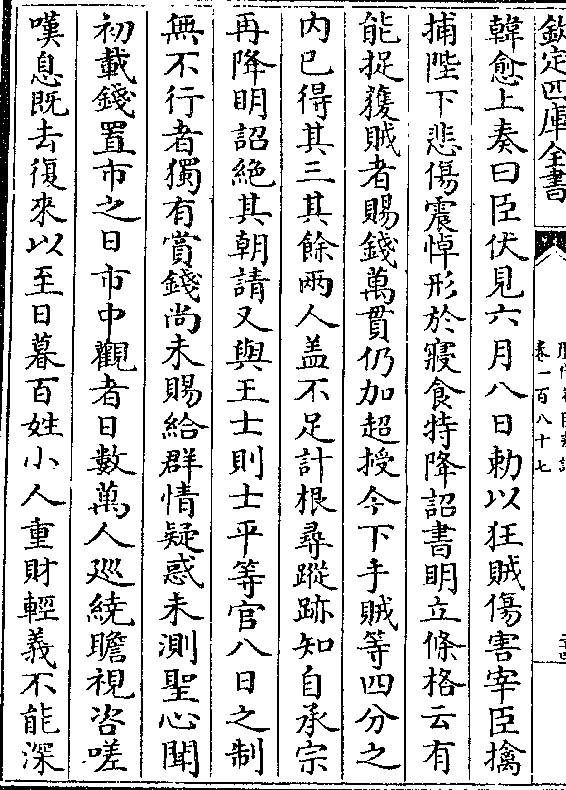 欽定四庫全書
卷一百八十七
韓愈上奏曰臣伏見六月八日勅以狂賊傷害宰臣擒
捕陛下悲傷震悼形於寢食特降詔書明立條格云有
能捉獲賊者賜錢萬貫仍加超授今下手賊等四分之
内已得其三其餘兩人盖不足計根尋蹤跡知自承宗
再降明詔絶其朝請又與王士則士平等官八日之制
無不行者獨有賞錢尚未賜給群情疑惑未測聖心聞
初載錢置市之日市中觀者日數萬人廵繞瞻視咨嗟
嘆息既去復來以至日暮百姓小人重財輕義不能深